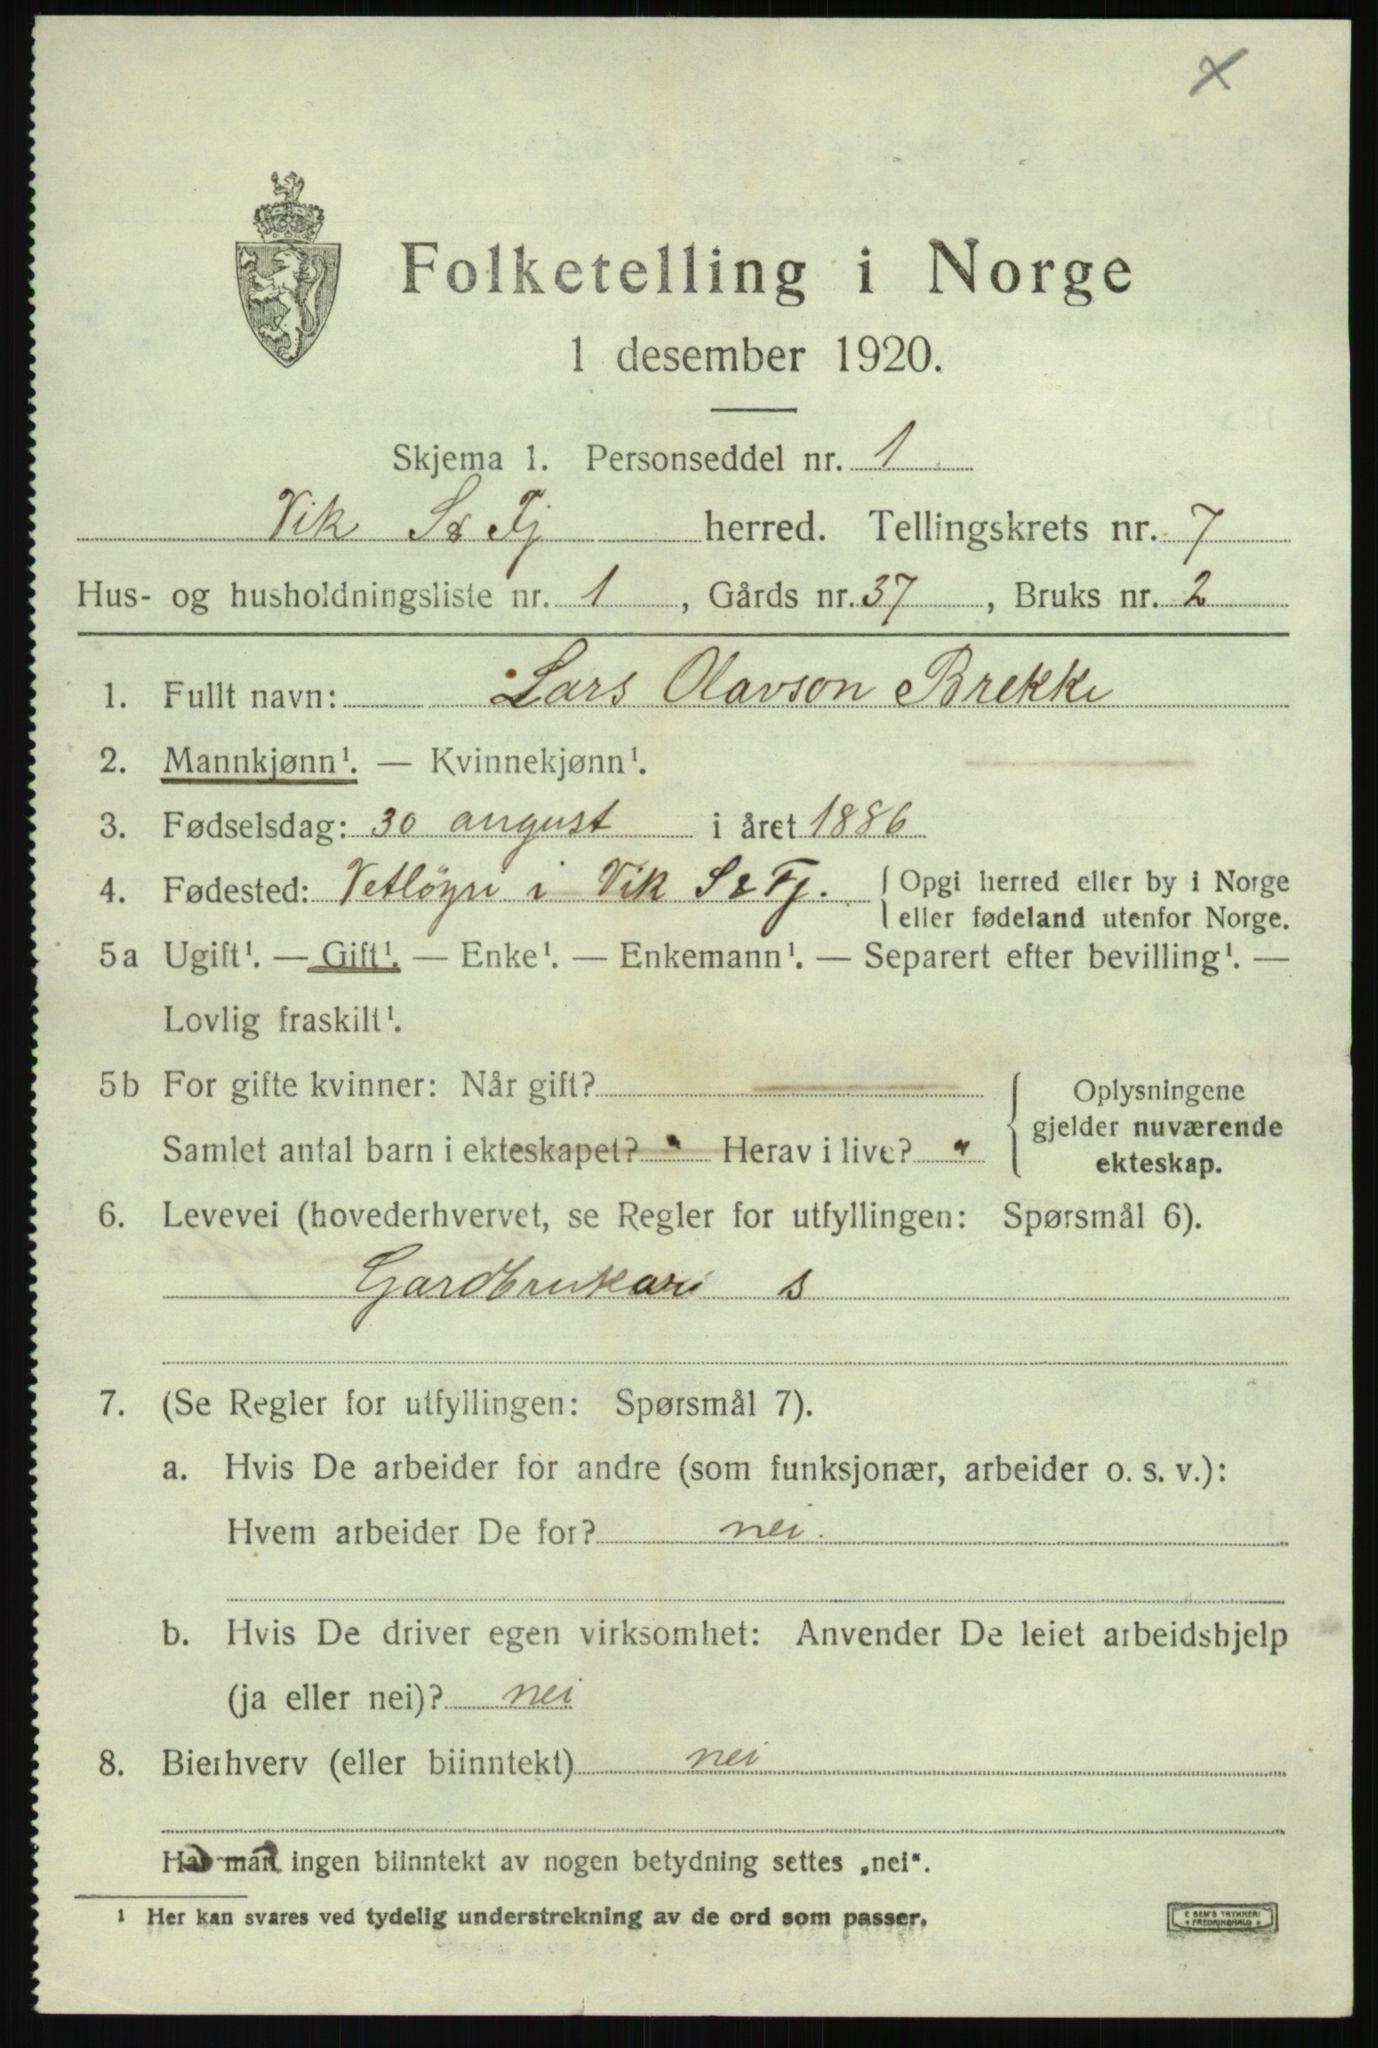 Folketelling i Norge
1 desember 1920.
Skjema 1. Personseddel nr. 1
Vik S & Fj herred. Tellingskrets nr. 7
Hus- og husholdningsliste nr. 1, Gårds nr. 37, Bruks nr. 2
1. Fullt navn: Lars Olavson Brekke
2. Mannkjønn¹. — Kvinnekjønn¹.
3. Fødselsdag: 30 august i året 1886
4. Fødested: Vetløyri i Vik S & Fj. { Opgi herred eller by i Norge
eller fødeland utenfor Norge.
5a Ugift¹. — Gift¹. — Enke¹. — Enkemann¹. — Separert efter bevilling¹. —
Lovlig fraskilt¹.
5b For gifte kvinner: Når gift?
Samlet antal barn i ekteskapet? " Herav i live? "
{ Oplysningene
gjelder nuværende
ekteskap.
6. Levevei (hovederhvervet, se Regler for utfyllingen: Spørsmål 6).
Gardbrukari s
7. (Se Regler for utfyllingen: Spørsmål 7).
a. Hvis De arbeider for andre (som funksjonær, arbeider o. s. v.):
Hvem arbeider De for? nei.
b. Hvis De driver egen virksomhet: Anvender De leiet arbeidshjelp
(ja eller nei)? nei
8. Bierhverv (eller biinntekt) nei
Har man ingen biinntekt av nogen betydning settes „nei".
¹ Her kan svares ved tydelig understrekning av de ord som passer.
E SEM'S TRYKKERI
* FREDRIKSHALD *